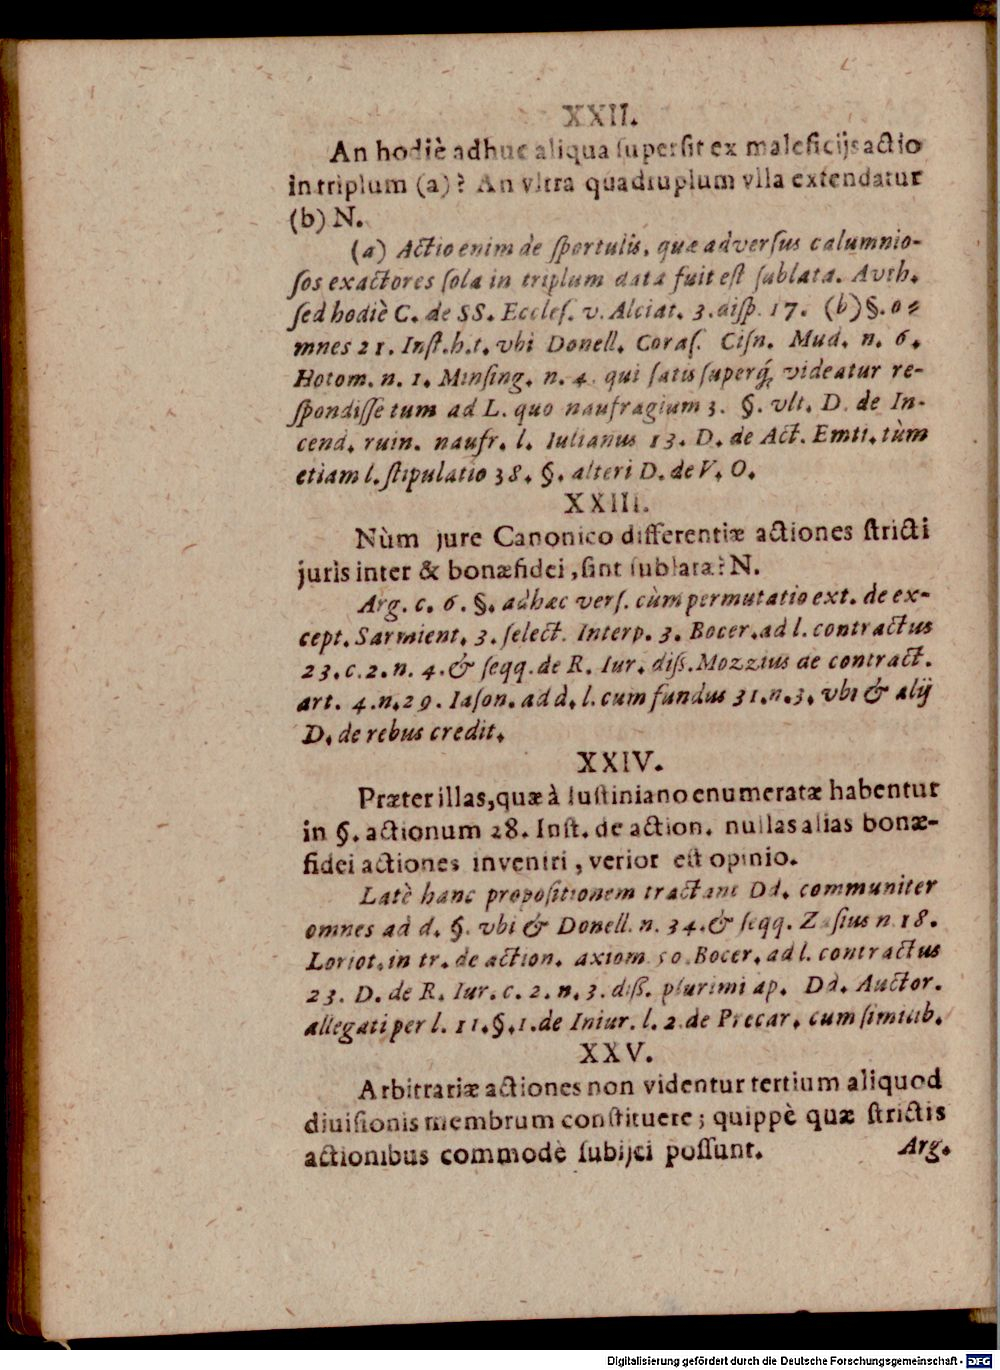 XXII.
An hodiè adhuc aliqua supersit ex maleficijs actio
in triplum (a)? An vltra quadruplum vlla extendatur
(b) N.
(a) Actio enim de sportulis, quæ adversus calumnio-
sos exactores sola in triplum data fuit est sublata. Avth.
sed hodiè C. de SS. Eccles. v. Alciat. 3. disp. 17. (b) §. o-
mnes 21. Inst. h. t. vbi Donell. Coras. Cisn. Mud. n. 6.
Hotom. n. 1. Minsing. n. 4. qui satis superq́; videatur re-
spondisse tum ad L. quo naufragium 3. §. vlt. D. de In-
cend. ruin. naufr. l. Iulianus 13. D. de Act. Emti. tùm
etiam l. stipulatio 38. §. alteri D. de V. O.
XXIII.
Nùm jure Canonico differentiæ actiones stricti
juris inter & bonæfidei, sint sublatæ? N.
Arg. c. 6. §. adhæc vers. cùm permutatio ext. de ex-
cept. Sarmient. 3. select. Interp. 3. Bocer. ad l. contractus
23. c. 2. n. 4. & seqq. de R. Iur. diss. Mozzius de contract.
art. 4. n. 29. Iason. ad d. l. cum fundus 31. n. 3. vbi & alij
D. de rebus credit.
XXIV.
Præter illas, quæ à Iustiniano enumeratæ habentur
in §. actionum 28. Inst. de action. nullas alias bonæ-
fidei actiones inveniri, verior est opinio.
Latè hanc propositionem tractant Dd. communiter
omnes ad d. §. vbi & Donell. n. 34. & seqq. Zasius n. 18.
Loriot. in tr. de action. axiom. 50. Bocer. ad l. contractus
23. D. de R. Iur. c. 2. n. 3. diss. plurimi ap. Dd. Auctor.
allegati per l. 11. §. 1. de Iniur. l. 2. de Precar. cum simiib.
XXV.
Arbitrariæ actiones non videntur tertium aliquod
diuisionis membrum constituere; quippè quæ strictis
actionibus commodè subijci possunt.
Arg.
Digitalisierung gefördert durch die Deutsche Forschungsgemeinschaft - DFG